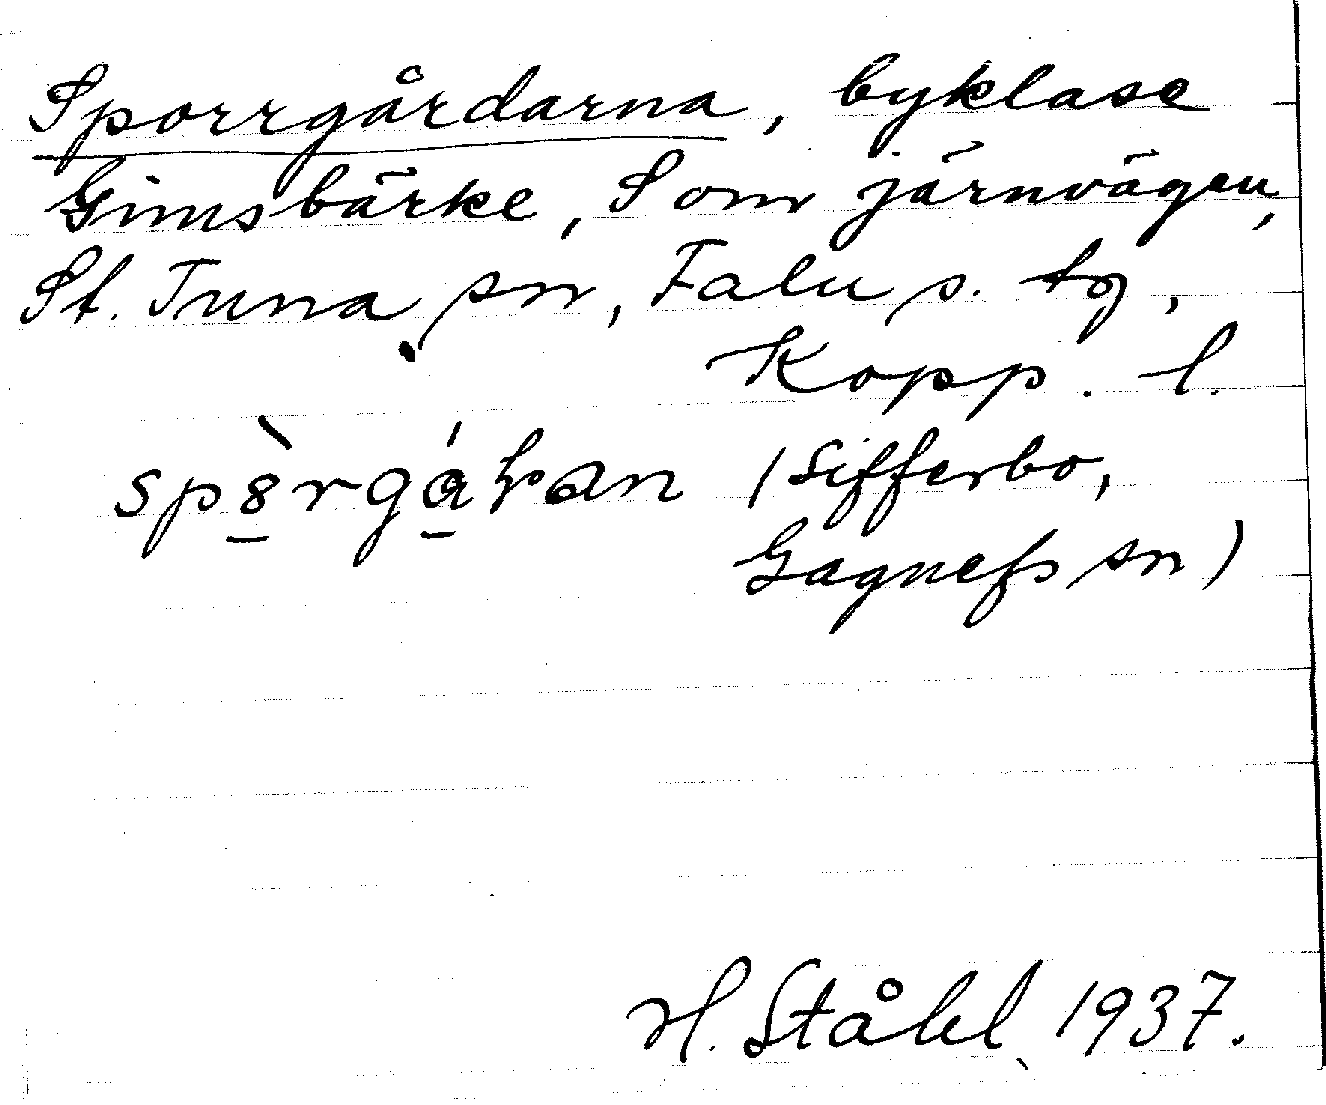 Sporrgårdarna, byklase
Gimsbärke, S om järnvägen,
St. Tuna sn, Falu s. tg,
Kopp. l.
(Sifferbo,
Gagnefs sn)
H. Ståhl 1937.